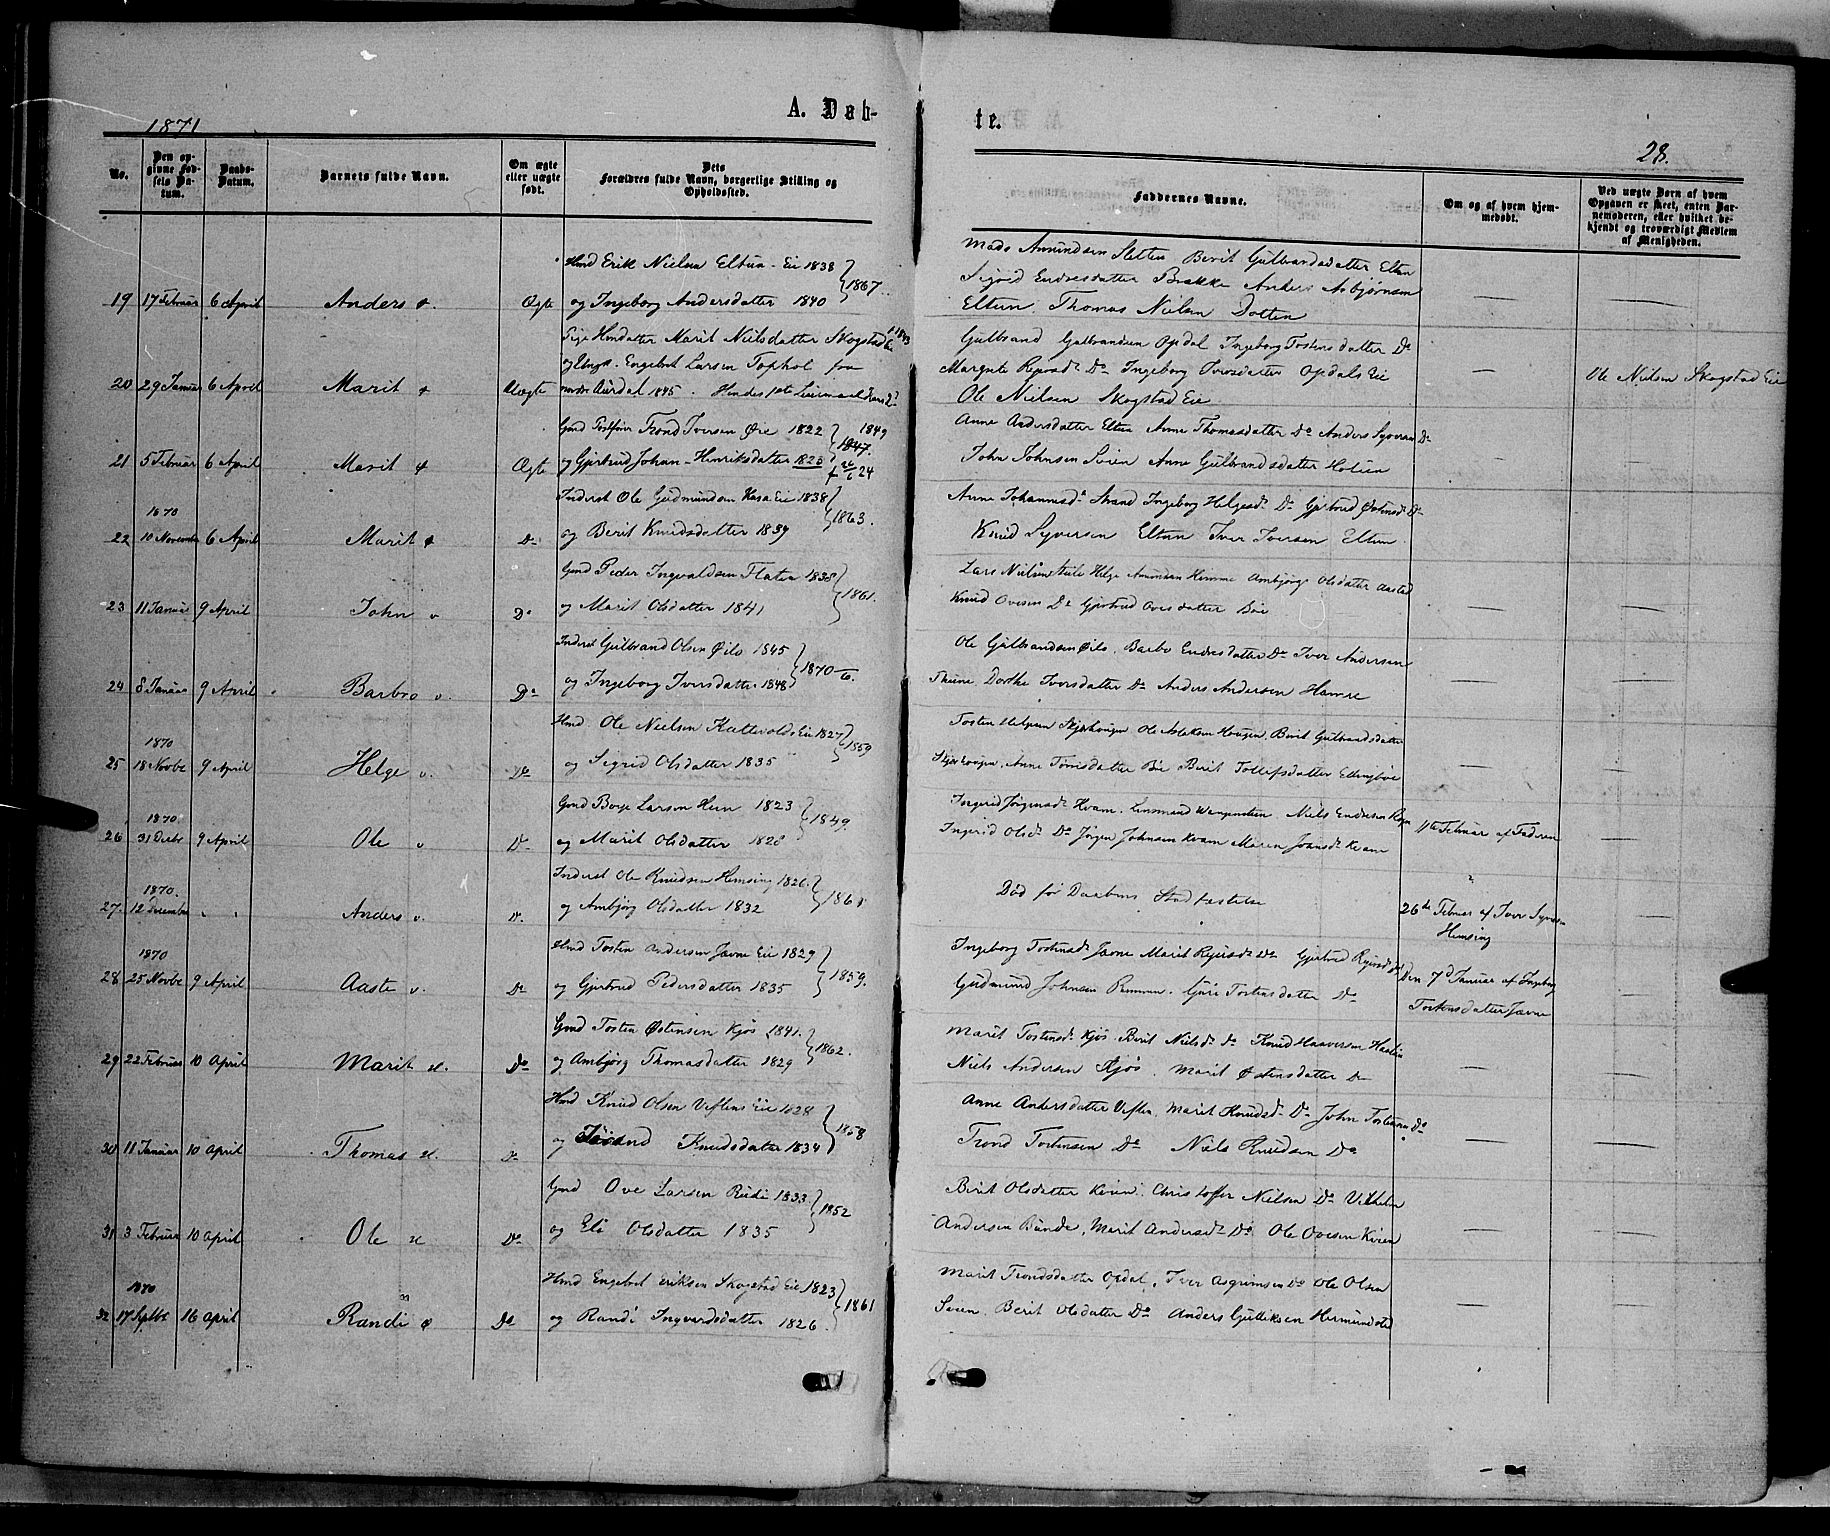 1871
A. Døb-
te.
28.
No.
Den opgivne Fødsels Datum.
Daabs-Datum.
Barnets fulde Navn.
Om ægte eller uægte født.
Dets Forældres fulde Navn, borgerlige Stilling og Opholdssted.
Faddernes Navne.
Om og af hvem hjemmedøbt.
Ved uægte Børn af hvem Opgaven er skeet, enten Barnemoderen, eller hvilket bekjendt og troværdigt Medlem af Menigheden.
Hmd Erik Nielsen Eltun-Eie 1838
19 17 Februar 6 April Anders Ægte og Ingeborg Andersdatter 1840 } 1867
Mads Amundsen Sletten Berit Gulbrandsdatter Eltun
Sigrid Endresdatter Brække Anders Asbjørnsen
Eltun. Thomas Nielsen Dotten
Pige Hmdatter Marit Nielsdatter Skogstad Eie 1843
og Ungk. Engebret Larsen Tophol fra
20 29 Januar 6 April Marit Uægte nordre Aurdal 1845. Hendes 1ste Leiermaal Hans 2d
Gulbrand Gulbrandsen Opdal Ingeborg Tostensdatter Do
Margrete Do Ingeborg Iversdatter Opdals Eie
Ole Nielsen Skogstad Eie
Ole Nielsen Skogstad Eie
Gmd Trond Iversen Øie 1822 } 1849 1847
21 5 Februar 6 April Marit Ægte og Gjertrud Johan-Henriksdatter 1825 24
Anne Andersdatter Eltun Anne Thomasdatter Do Anders Syversen Do
John Johnsen Svien Anne Gulbrandsdatter Holien
Inderst Ole Gudmundsen Kasa Eie 1838
1870
22 10 November 6 April Marit Do og Berit Knudsdatter 1839 } 1863.
Anne Johannesd. Strand Ingeborg Helgesd. Do Gjertrud Østensd. Do
Knud Syversen Eltun Iver Iversen Eltun
Gmd Peder Ingvaldsen Flaten 1838
23 11 Januar 9 April John Do og Marit Olsdatter 1841 } 1861.
Lars Nielsen Helge Amundsen Hemme Ambjørg Olsdatter Aasted
Knud Ovesen Do Gjertrud Ovesdatter Bøe
Inderst Gulbrand Olsen Øilo 1845
24 8 Januar 9 April Barbro Do og Ingeborg Iversdatter 1848 } 1870
Ole Gulbrandsen Øilo. Barbro Endresdatter Do Iver Andersen
Dorthe Iversdatter Do Anders Andersen Hamre
Hmd Ole Nielsen Kattevolds Eie 1827
1870
25 18 Novbr 9 April Helge Do og Sigrid Olsdatter 1835 } 1859
Tosten Helgesen Skjerhougen Ole Aslaksen Hougen. Berit Gulbrandsdatter
Skjerhougen. Anne Tønisdatter Bøe Berit Tollefsdatter Ellingbøe
Gmd Børge Larsen Hem 1823
1870.
26 31 Decbr 9 April Ole Do og Marit Olsdatter 1828 } 1849.
Ingrid Jørgensd. Kvam. Wangensten. Niels Endresen
Ingrid Olsd. Do Jørgen Johnsen Kvam Maren Johnsd. Kvam
11te Februar af Faderen
Inderst Ole Knudsen Hemsing 1826
1870.
27. 12 December " " Anders Do og Ambjørg Olsdatter 1832 } 1861
Død før Daabens Stadfæstelse
26de Februar af Iver Syvers. Hemsing
Hmd Tosten Andersen Jævne Eie 1829
1870
28 25 Novbr 9 April Aaste Do og Gjertrud Pedersdatter 1835 } 1859.
Ingeborg Tostensd. Jævne Marit Do Gjertrud Do
Gudmund Johnsen Guri Tostensdatter Do
Den 7d Januar af Ingeborg Tostensdatter Jævne
Gmd Tosten Østensen Kjøs 1841.
29 22 Februar 10 April Marit Do og Ambjørg Thomasdatter 1829 } 1862.
Marit Tostensd. Kjøs Berit Nielsd. Do Knud Haaversen
Niels Andersen Kjøs. Marit Østensdatter Do
Hmd Knud Olsen Veflens Eie 1828
30 11 Januar 10 April Thomas Do og Jørand Knudsdatter 1834 } 1858
Anne Andersdatter Veflen. Marit Knudsd. Do John Tostensen Do
Trond Tostensen Do Niels Knudsen Do
Gmd Ove Larsen Rudi 1833
31 3 Februar 10 April Ole Do og Eli Olsdatter 1835 } 1852
Berit Olsdatter Kvien. Christoffer Nielsen Do Vilhelm
Andersen Bunde, Marit Andersd. Do Ole Ovesen Kvien
Hmd Engebret Eriksen Skogstad Eie 1823
1870
32 17 Septbr 16 April Randi Do og Randi Ingvardsdatter 1826 } 1861
Marit Trondsdatter Opdal. Iver Asgrimsen Do Ole Olsen
Svien. Berit Olsdatter Do Anders Gulliksen Hermundstad